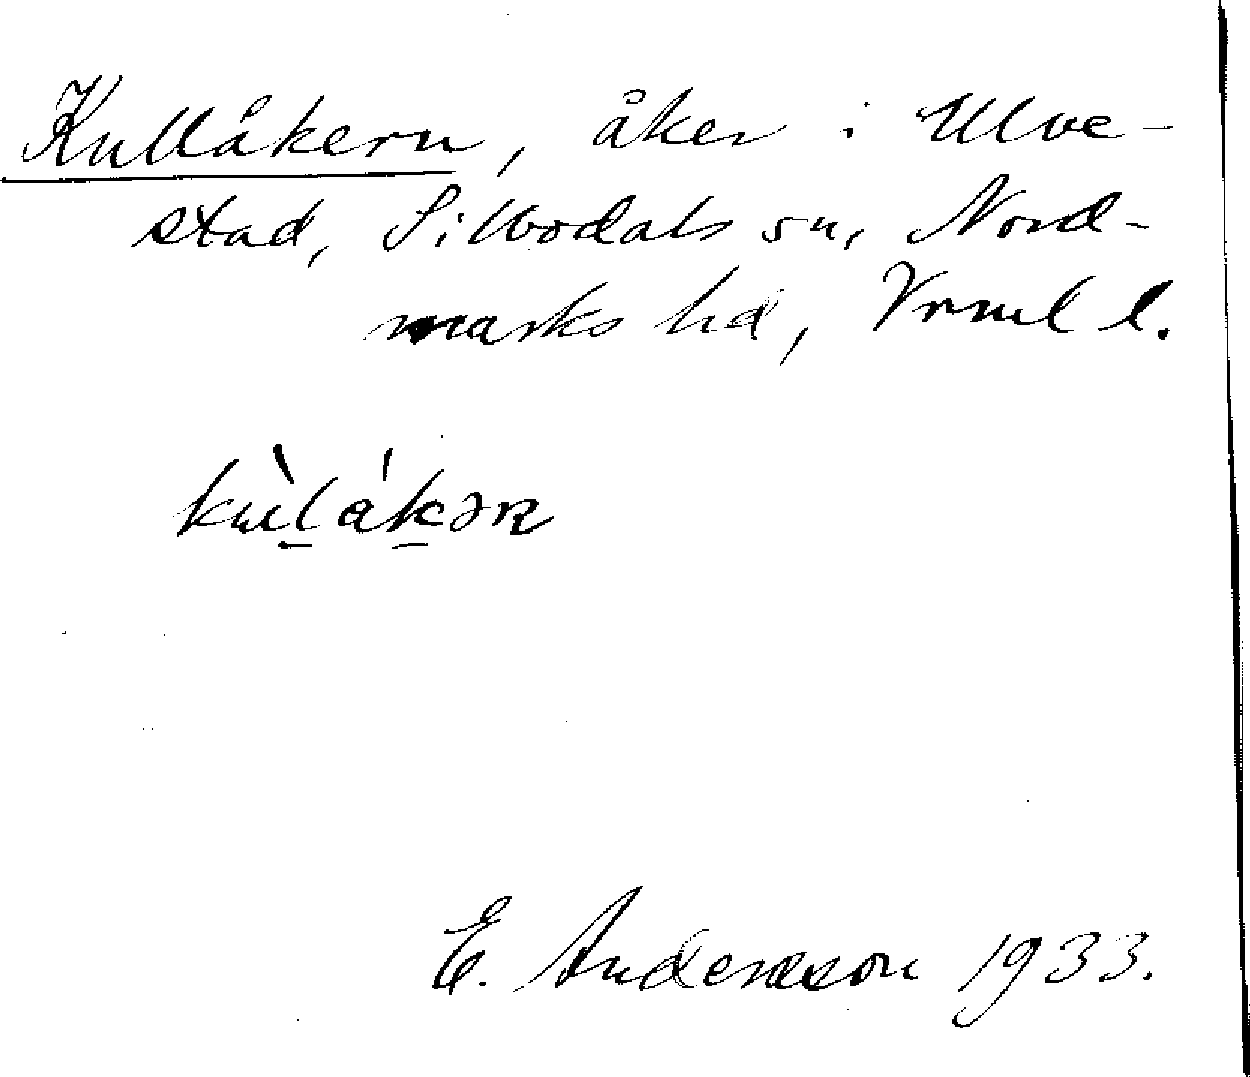 Kullåkern, åker i Ulve-
stad, Silbodals sn, Nord-
marks hd, Vrml l.
kùl̠ák̠ər
E. Andersson 1933.